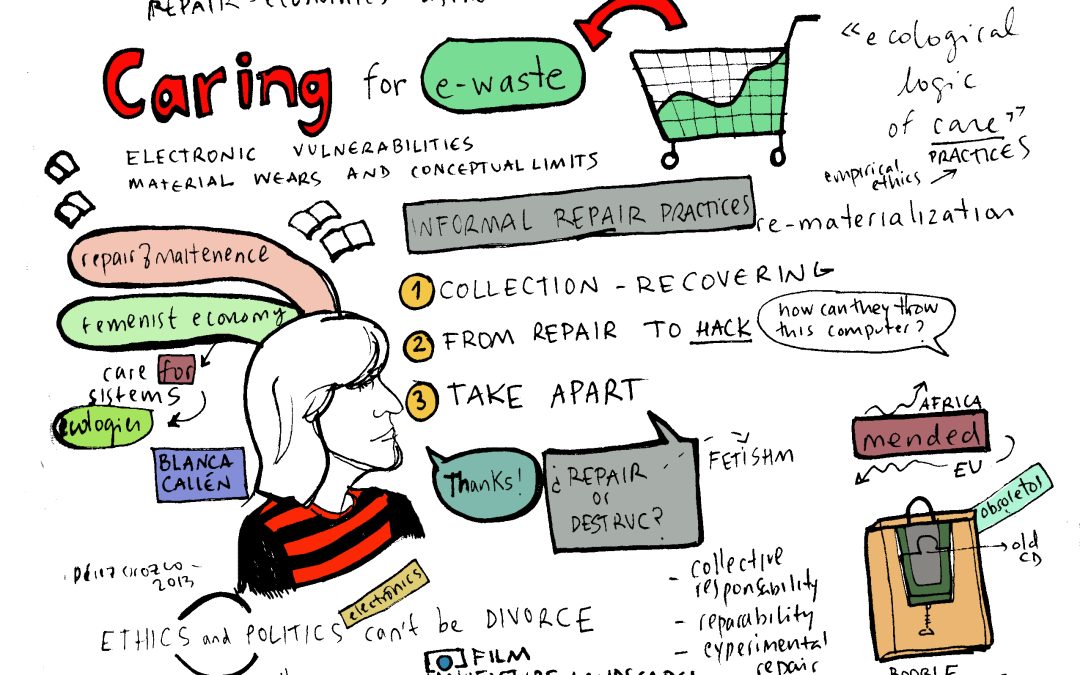 REPAIR-ECONOMICS
Caring for e-waste
"ecological
logic
of care"
PRACTICES
empirical
ethics
ELECTRONIC VULNERABILITIES
MATERIAL WEARS AND CONCEPTUAL LIMITS
INFORMAL REPAIR PRACTICES
re-materialization
repair & maltenence
femenist economy
care for
sistems
ecologies
BLANCA
CALLÉN
1 COLLECTION - RECOVERING
2 FROM REPAIR TO HACK
how can they throw
this computer?
3 TAKE APART
Thanks!
¿REPAIR
or
DESTRUC?
FETISHM
AFRICA
mended
EU
obsoletos
old
CD
2013
electronics
ETHICS and POLITICS can't be DIVORCE
- collective
responsability
- reparability
- experimental
repair
FILM